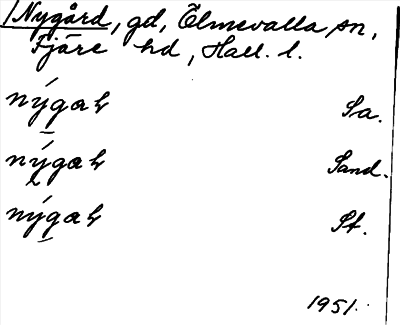 Nygård, gd, Ölmevalla sn,
Fjäre hd, Hall. l.
nýgaɦ Sa.
nýgaɦ Sand.
nýgaɦ St.
1951.